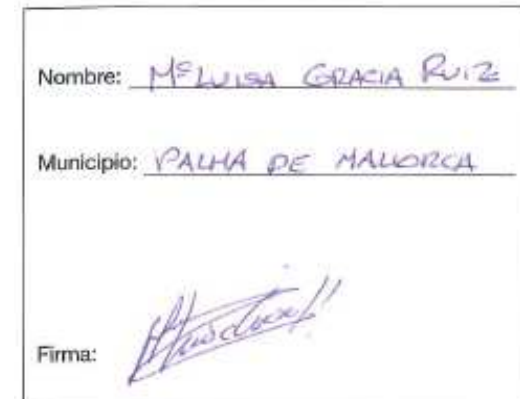 Nombre: Mª LUISA GRACIA RUIZ
Municipio: PALMA DE MALLORCA
Firma: